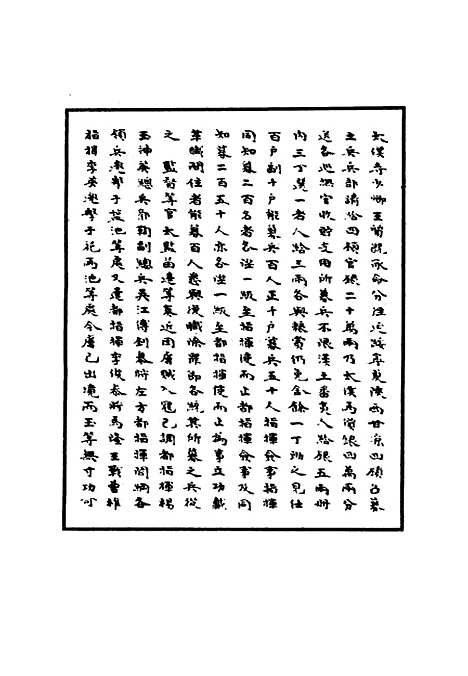 太僕寺少卿王質說承命分往延綏寧夏陝西甘涼四鎮召募
土兵兵部請給四鎮官銀二十萬兩乃太僕馬價銀四萬兩分
送各巡撫官收貯支用所募兵不限漢土番夷人給銀五兩冊
內三丁選一者人給三兩各與糧賞仍免舍餘一丁聽之見任
百戶副千戶能募兵百人正千戶募兵五十人指揮僉事指揮
同知募二百名者各陞一級至指揮使而止都指揮僉事及同
知募二百五十人亦各陞一級至都指揮使而止為事立功戴
革職閒住者能募百人悉與復職除授部各統其所募之兵從
之 監督等官太監苗逵等奏近因虜賊入寇已調都指揮楊
玉神英總兵郭鞫副總兵吳江傅釗恭將左方都指揮閻綱各
領兵邀擊于鹽池等處又遣都指揮李俊恭將馬隆王戟曹雄
指揮李英邀擊于花馬池等處今虜已出境而玉等無寸功可